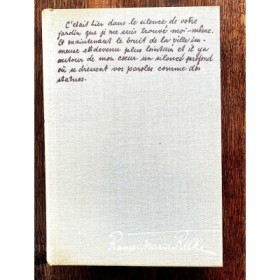 C'était hier dans le silence de votre
jardin que je me suis trouvé moi-même.
Et maintenant le bruit de la ville im-
mense est devenu plus lointain et il y a
autour de mon cœur un silence profond
où se dressent vos paroles comme des
statues.
Rainer Maria Rilke